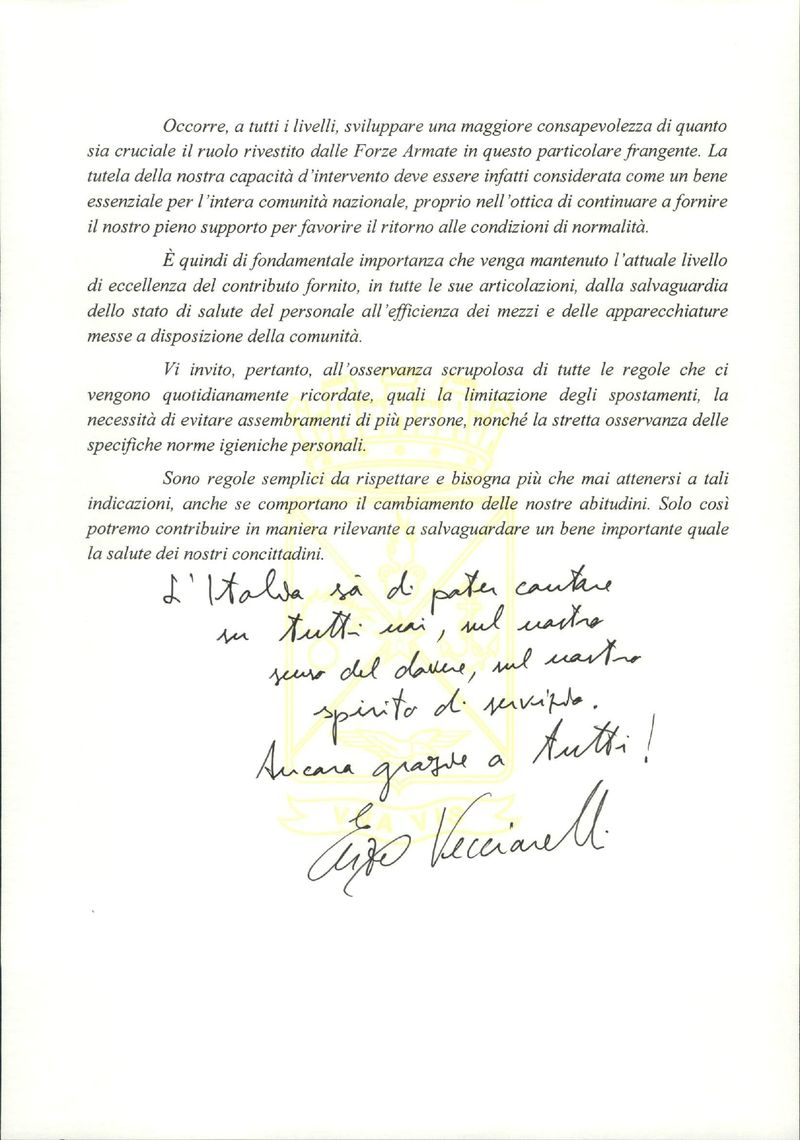 Occorre, a tutti i livelli, sviluppare una maggiore consapevolezza di quanto
sia cruciale il ruolo rivestito dalle Forze Armate in questo particolare frangente. La
tutela della nostra capacità d'intervento deve essere infatti considerata come un bene
essenziale per l'intera comunità nazionale, proprio nell'ottica di continuare a fornire
il nostro pieno supporto per favorire il ritorno alle condizioni di normalità.
È quindi di fondamentale importanza che venga mantenuto l'attuale livello
di eccellenza del contributo fornito, in tutte le sue articolazioni, dalla salvaguardia
dello stato di salute del personale all'efficienza dei mezzi e delle apparecchiature
messe a disposizione della comunità.
Vi invito, pertanto, all'osservanza scrupolosa di tutte le regole che ci
vengono quotidianamente ricordate, quali la limitazione degli spostamenti, la
necessità di evitare assembramenti di più persone, nonché la stretta osservanza delle
specifiche norme igieniche personali.
Sono regole semplici da rispettare e bisogna più che mai attenersi a tali
indicazioni, anche se comportano il cambiamento delle nostre abitudini. Solo così
potremo contribuire in maniera rilevante a salvaguardare un bene importante quale
la salute dei nostri concittadini.
L'Italia sà di poter contare
su tutti noi, sul nostro
senso del dovere, sul nostro
spirito di servizio.
Ancora grazie a tutti!
Enzo Vecciarelli
VNA VIS